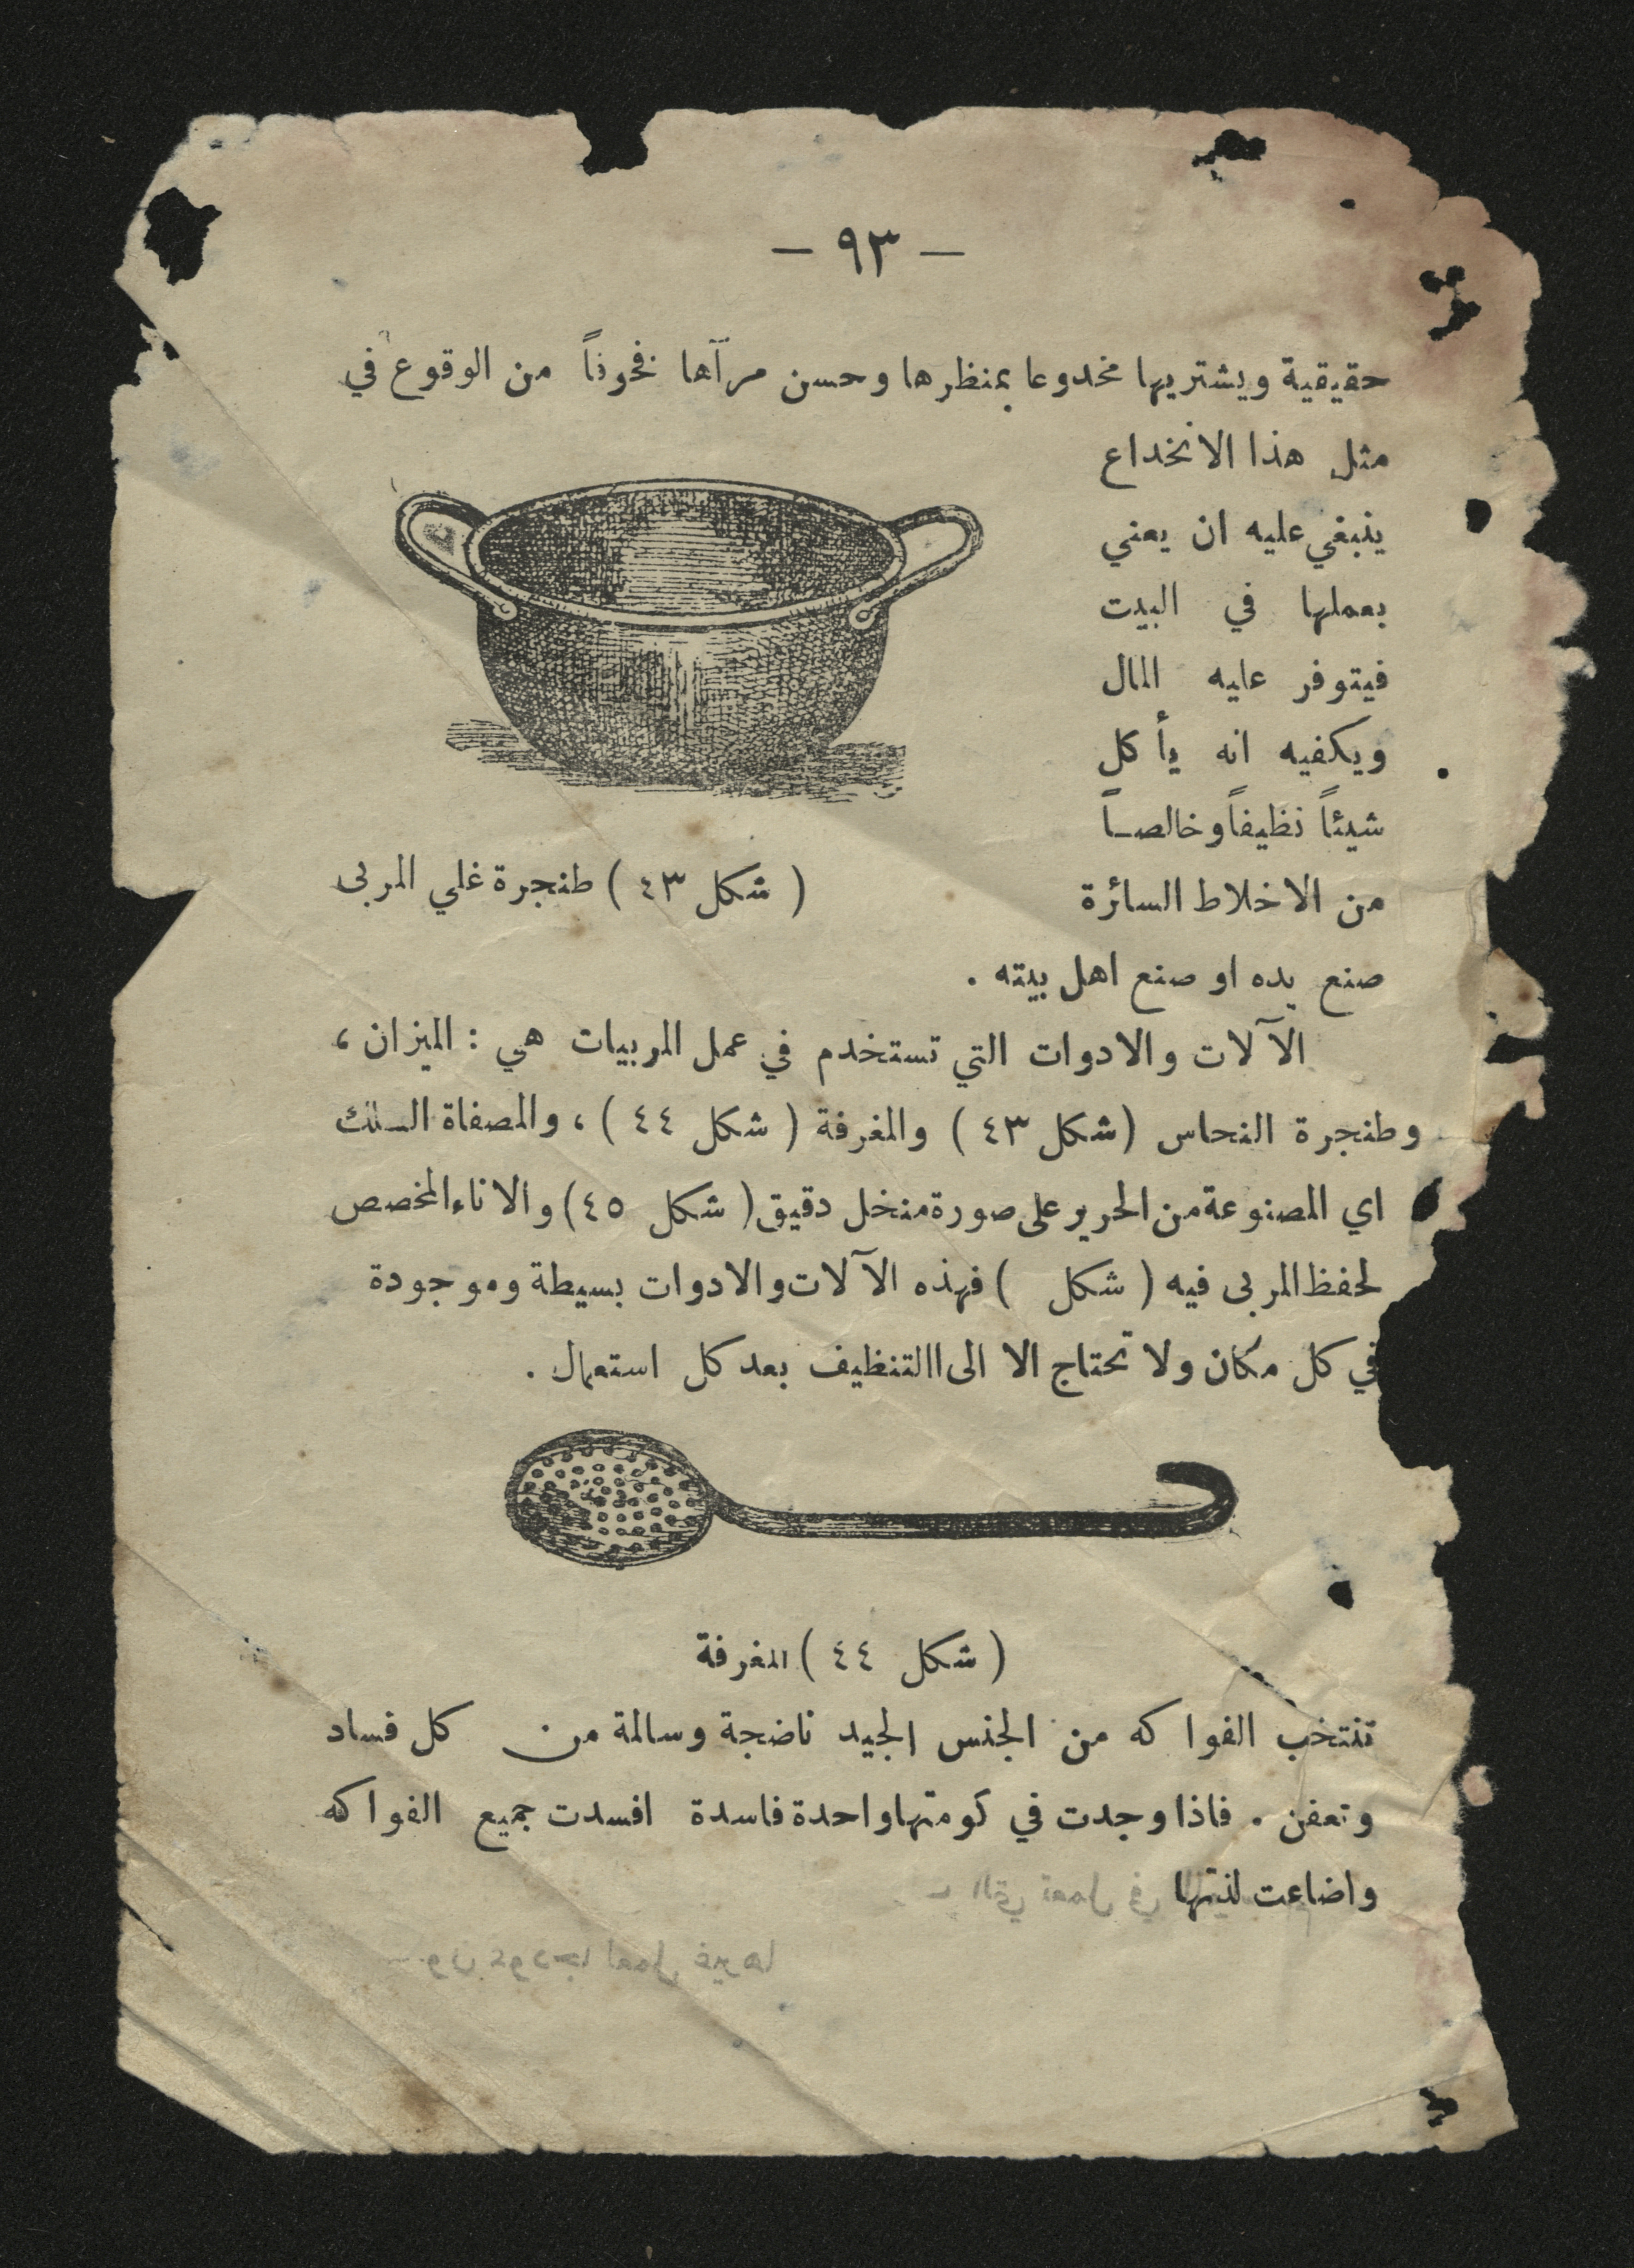 — ٩٣ —
حقيقية ويشتريها مخدوعا بمنظرها وحسن مرآها فخوفاً من الوقوع في
مثل هذا الانخداع
ينبغي عليه ان يعني
بعملها في البيت
فيتوفر عليه المال
ويكفيه انه يأكل
شيئاً نظيفاً وخالصاً
من الاخلاط السائرة
( شكل ٤٣ ) طنجرة غلي المربى
صنع يده او صنع اهل بيته .
الآلات والادوات التي تستخدم في عمل المربيات هي : الميزان ،
وطنجرة النحاس ( شكل ٤٣ ) والمغرفة ( شكل ٤٤ ) ، والمصفاة السلك
اي المصنوعة من الحرير على صورة منخل دقيق ( شكل ٤٥ ) والاناء المخصص
لحفظ المربى فيه ( شكل ) فهذه الآلات والادوات بسيطة وموجودة
في كل مكان ولا تحتاج الا الى االتنظيف بعد كل استعمال .
( شكل ٤٤ ) المغرفة
تنتخب الفواكه من الجنس الجيد ناضجة وسالمة من كل فساد
وتعفن . فاذا وجدت في كومتها واحدة فاسدة افسدت جميع الفواكه
واضاعت لذتها